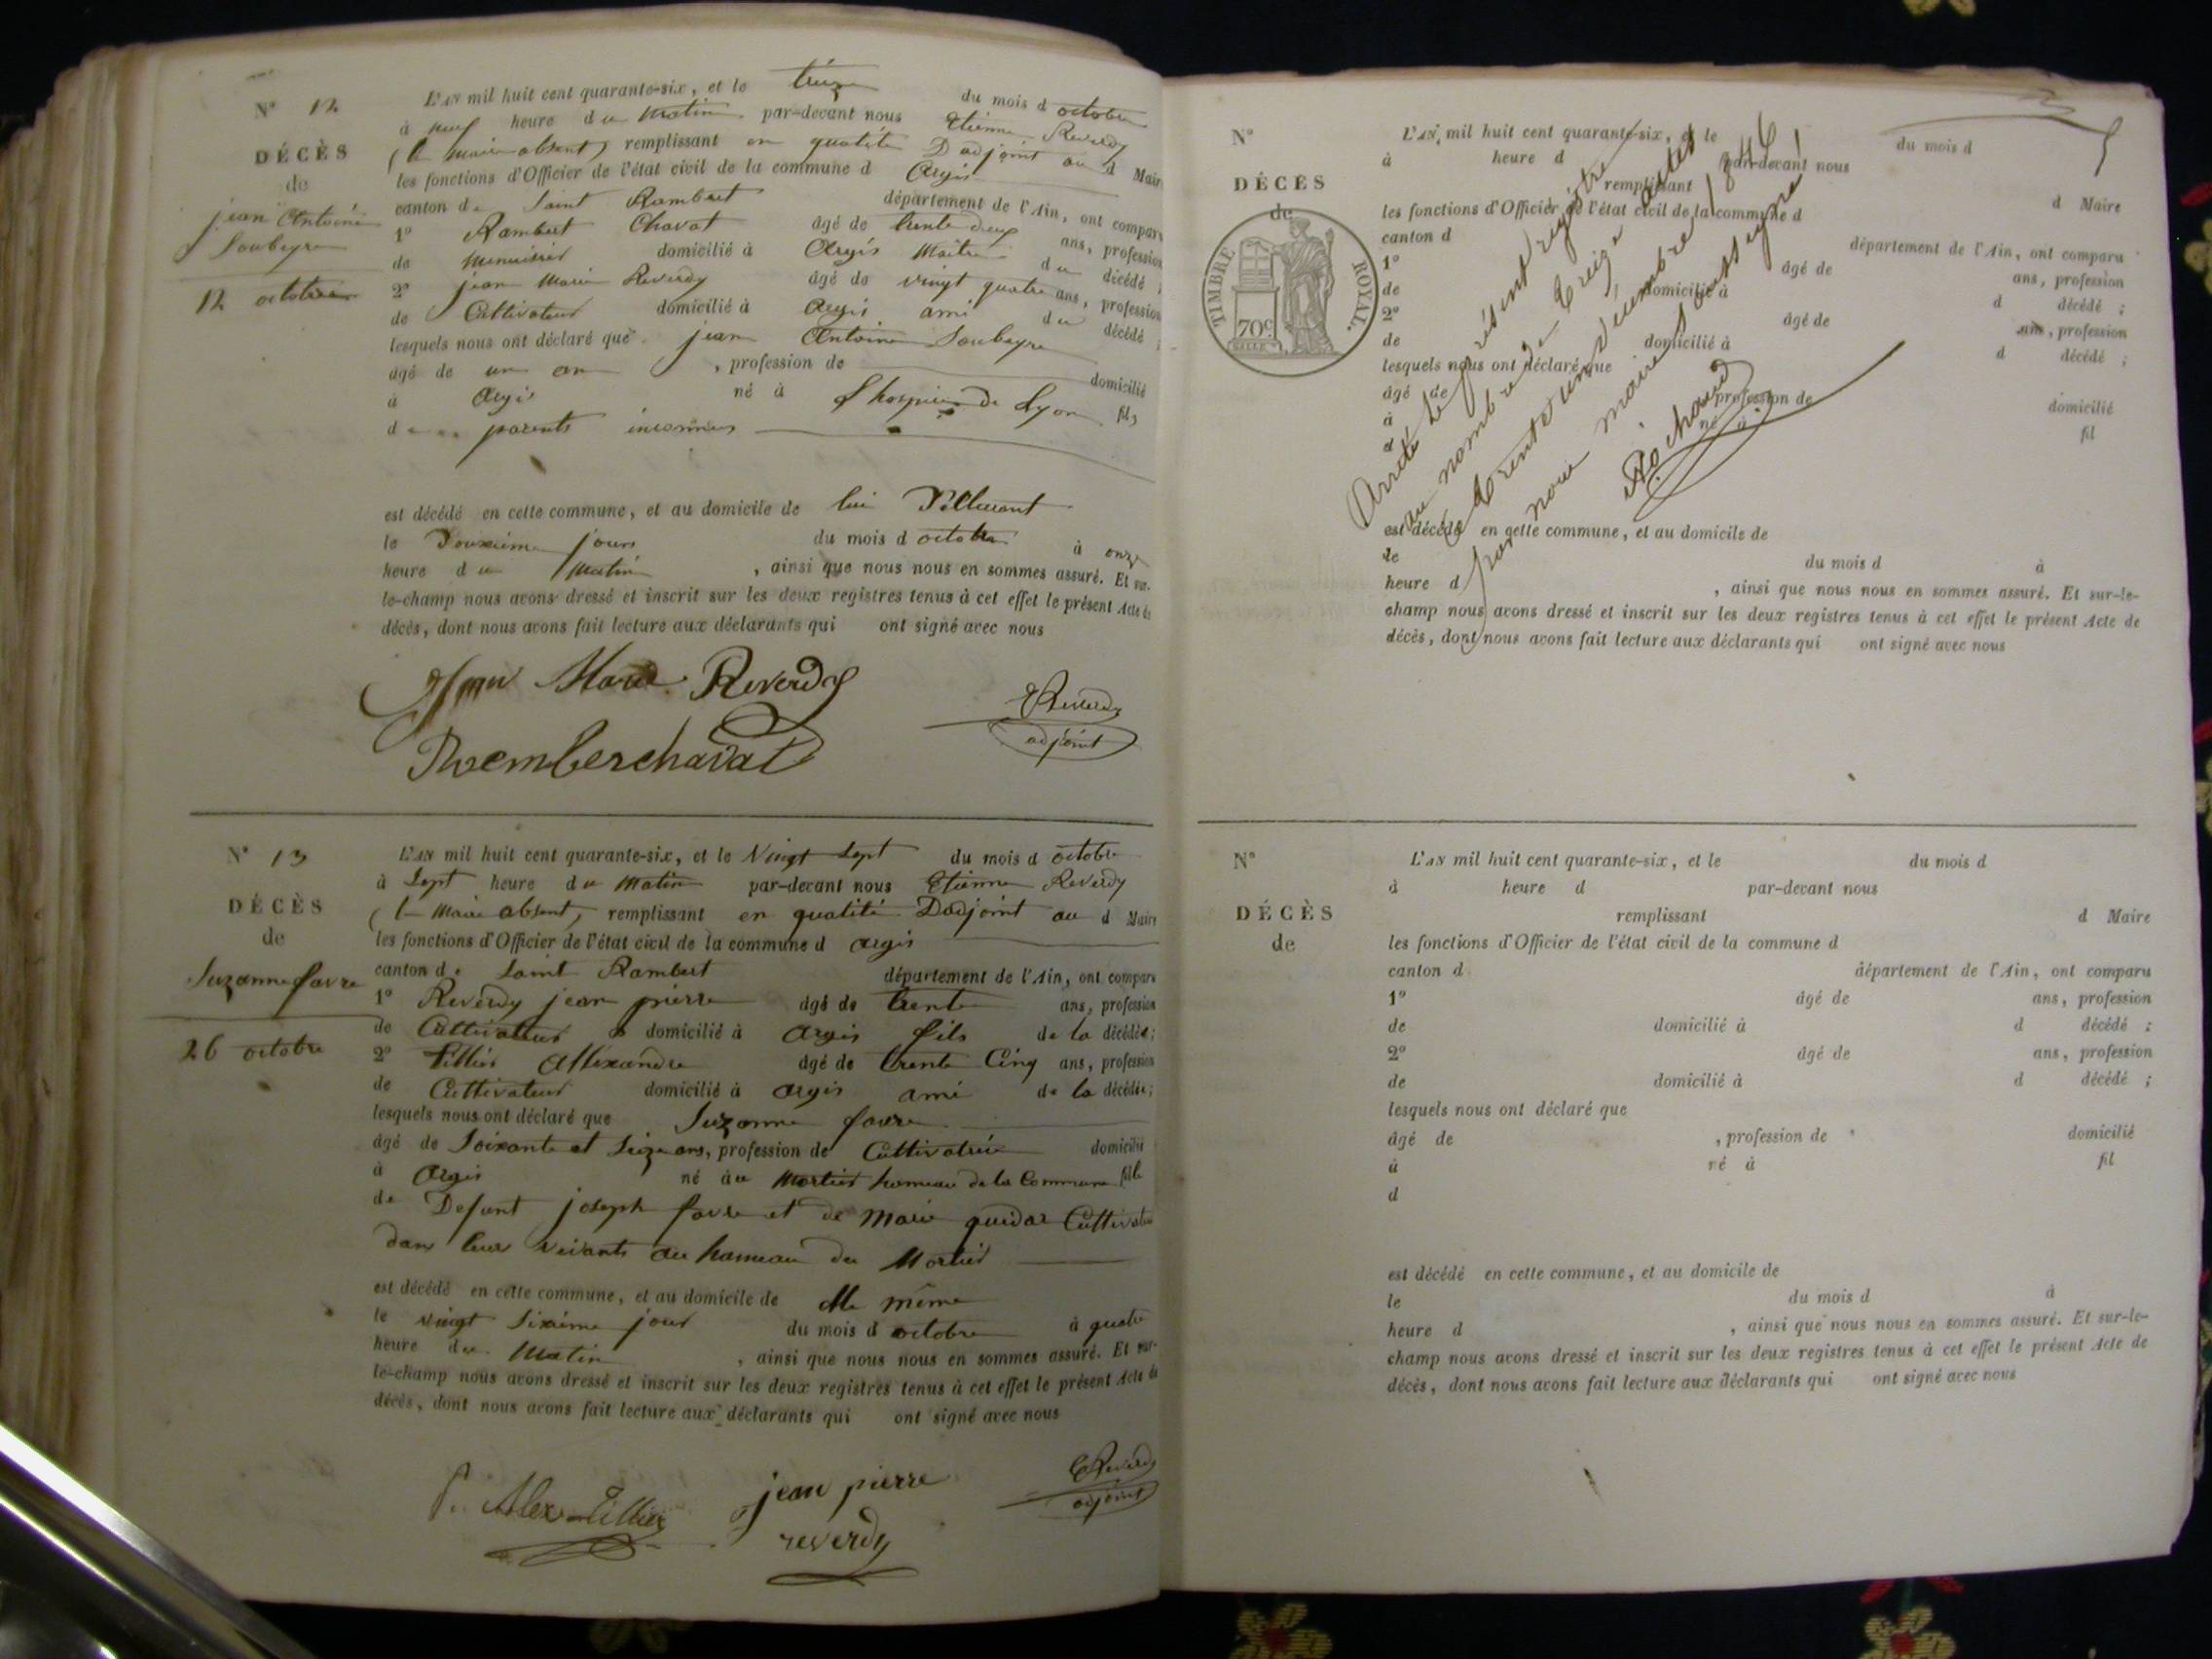 N° 12
DÉCÈS
de
jean Antoine
Soubeyre
12 octobre
L'AN mil huit cent quarante-six, et le treize du mois d octobre
à neuf heure du matin par-devant nous Etienne Reverdy
(le maire absent) remplissant en qualité D'adjoint au d Maire
les fonctions d'Officier de l'état civil de la commune d Argis
canton de Saint Rambert département de l'Ain, ont comparu
1° Rambert Chavat âgé de trente deux ans, profession
de Menuisier domicilié à Argis Maitre du décédé ;
2° jean Marie Reverdy âgé de vingt quatre ans, profession
de Cultivateur domicilié à Argis ami du décédé ;
lesquels nous ont déclaré que jean Antoine Soubeyre
âgé de un an , profession de domicilié
à Argis né à L'hospice de Lyon fils
de parents inconnus
est décédé en cette commune, et au domicile de lui
le Douzième jours du mois d octobre à onze
heure du Matin , ainsi que nous nous en sommes assuré. Et sur-
le-champ nous avons dressé et inscrit sur les deux registres tenus à cet effet le présent Acte de
décès, dont nous avons fait lecture aux déclarants qui ont signé avec nous
Jean Marie Reverdy
Remberchavat
EReverdy
adjoint
N° 13
DÉCÈS
de
Suzanne favre
26 octobre
L'AN mil huit cent quarante-six, et le Vingt Sept du mois d octobre
à Sept heure du Matin par-devant nous Etienne Reverdy
(le Maire absent) remplissant en qualité D'adjoint au d Maire
les fonctions d'Officier de l'état civil de la commune d argis
canton de Saint Rambert département de l'Ain, ont comparu
1° Reverdy jean pierre âgé de trente ans, profession
de Cultivateur domicilié à argis fils de la décédée;
2° Tillier Allexandre âgé de trente Cinq ans, profession
de Cultivateur domicilié à argis ami de la décédée;
lesquels nous ont déclaré que Suzanne favre
âgé de Soixante et Seize ans, profession de Cultivatrice domicilié
à Argis né au Mortier hameau de la Commune fille
de Defunt joseph favre et de Marie guidar Cultivateur
dans leur vivants au hameau du Mortier
est décédé en cette commune, et au domicile de elle même
le vingt Sixième jour du mois d octobre à quatre
heure du Matin , ainsi que nous nous en sommes assuré. Et sur-
le-champ nous avons dressé et inscrit sur les deux registres tenus à cet effet le présent Acte de
décès, dont nous avons fait lecture aux déclarants qui ont signé avec nous
Alex Tillier
jean pierre
reverdy
EReverdy
adjoint
N°
DÉCÈS
de
TIMBRE ROYAL.
70c
L'AN mil huit cent quarante-six, et le du mois d
à heure d par-devant nous
remplissant d Maire
les fonctions d'Officier de l'état civil de la commune d
canton d département de l'Ain, ont comparu
1° âgé de ans, profession
de domicilié à d décédé ;
2° âgé de ans, profession
de domicilié à d décédé ;
lesquels nous ont déclaré que
âgé de , profession de domicilié
à né à fil
d
est décédé en cette commune, et au domicile de
le du mois d à
heure d , ainsi que nous nous en sommes assuré. Et sur-le-
champ nous avons dressé et inscrit sur les deux registres tenus à cet effet le présent Acte de
décès, dont nous avons fait lecture aux déclarants qui ont signé avec nous
Arrêté le présent registre
au nombre de treize actes
le trente un décembre 1846
par nous maire soussigné
Rochaud
N°
DÉCÈS
de
L'AN mil huit cent quarante-six, et le du mois d
à heure d par-devant nous
remplissant d Maire
les fonctions d'Officier de l'état civil de la commune d
canton d département de l'Ain, ont comparu
1° âgé de ans, profession
de domicilié à d décédé ;
2° âgé de ans, profession
de domicilié à d décédé ;
lesquels nous ont déclaré que
âgé de , profession de domicilié
à né à fil
d
est décédé en cette commune, et au domicile de
le du mois d à
heure d , ainsi que nous nous en sommes assuré. Et sur-le-
champ nous avons dressé et inscrit sur les deux registres tenus à cet effet le présent Acte de
décès, dont nous avons fait lecture aux déclarants qui ont signé avec nous